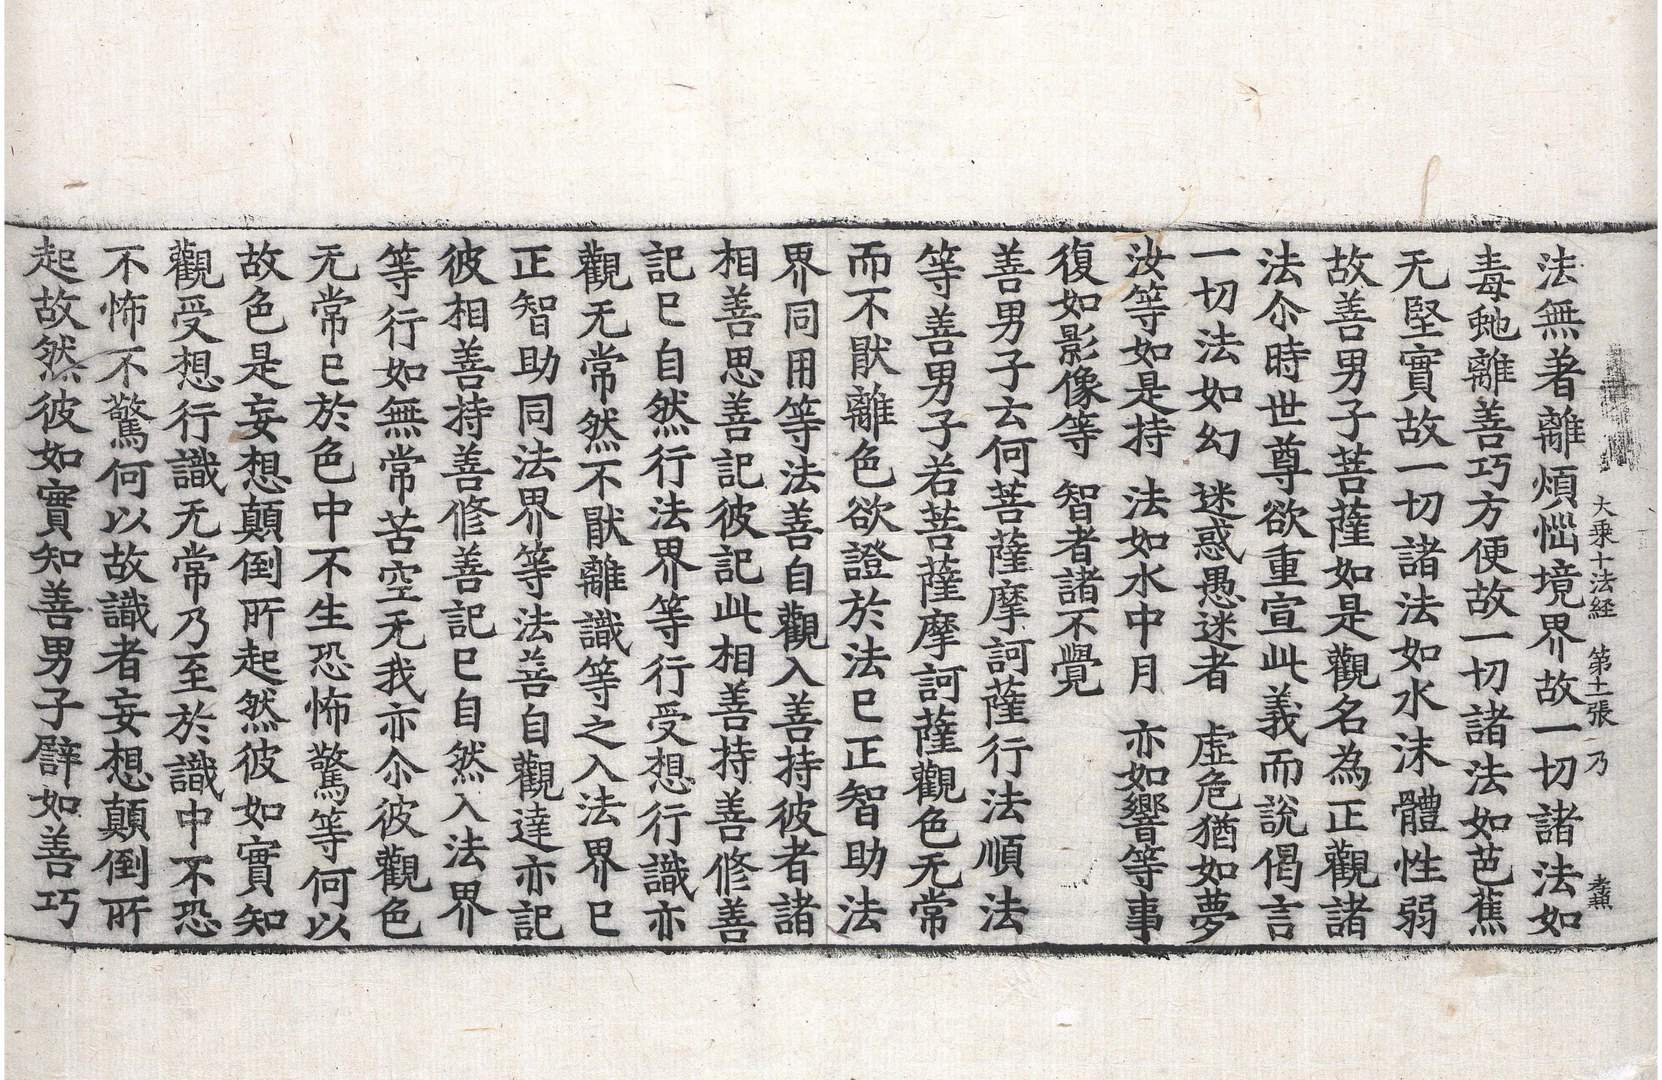 大乗十法経 第十一張 乃
法無著離煩惱境界故一切諸法如
毒虵離善巧方便故一切諸法如芭蕉
无堅實故一切諸法如水沫體性弱
故善男子菩薩如是觀名為正觀諸
法尒時世尊欲重宣此義而說偈言
一切法如幻 迷惑愚迷者 虛危猶如夢
汝等如是持 法如水中月 亦如響等事
復如影像等 智者諸不覺
善男子云何菩薩摩訶薩行法順法
等善男子若菩薩摩訶薩觀色无常
而不猒離色欲證於法已正智助法
界同用等法善自觀入善持彼者諸
相善思善記彼記此相善持善修善
記已自然行法界等行受想行識亦
觀无常然不猒離識等之入法界已
正智助同法界等法善自觀達亦記
彼相善持善修善記已自然入法界
等行如無常苦空无我亦尒彼觀色
无常已於色中不生恐怖驚等何以
故色是妄想顛倒所起然彼如實知
觀受想行識无常乃至於識中不恐
不怖不驚何以故識者妄想顛倒所
起故然彼如實知善男子譬如善巧